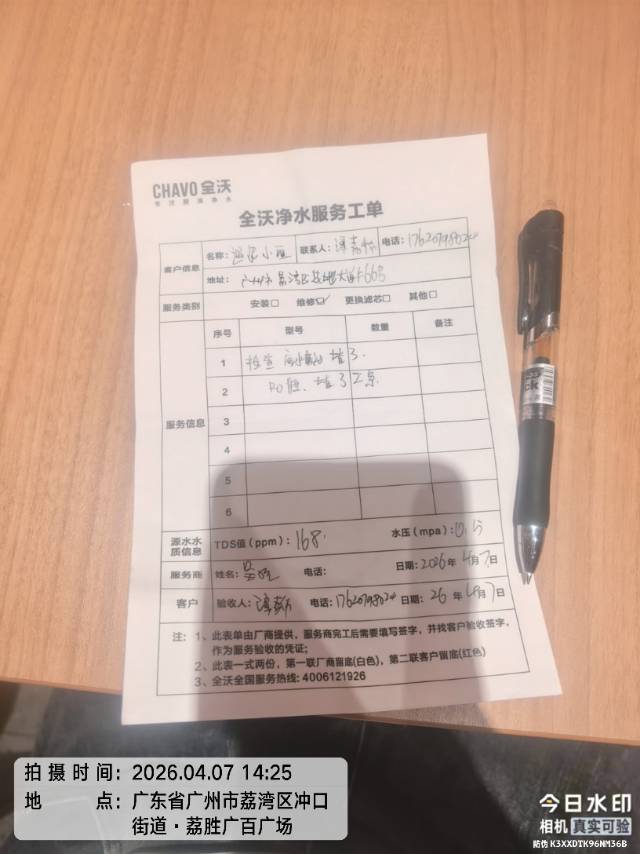 CHAVO 全沃
专注厨房净水
全沃净水服务工单
客户信息 名称: 联系人: 电话:
地址: 广州市荔湾区
服务类别 安装□ 维修☑ 更换滤芯□ 其他□
服务信息 序号 型号 数量 备注
1 检查 堵了.
2 堵了
3
4
5
6
源水水质信息 TDS值(ppm): 168 水压(mpa):
服务商 姓名: 电话: 日期: 2026年4月7日
客户 验收人: 电话: 日期: 26年4月7日
注: 1、此表单由厂商提供, 服务商完工后需要填写签字, 并找客户验收签字,
作为服务验收的凭证;
2、此表一式两份, 第一联厂商留底(白色), 第二联客户留底(红色)
3、全沃全国服务热线: 4006121926
拍摄时间: 2026.04.07 14:25
地点: 广东省广州市荔湾区冲口
街道·荔胜广百广场
今日水印
相机 真实可验
防伪 K3XXDTK96NM36B